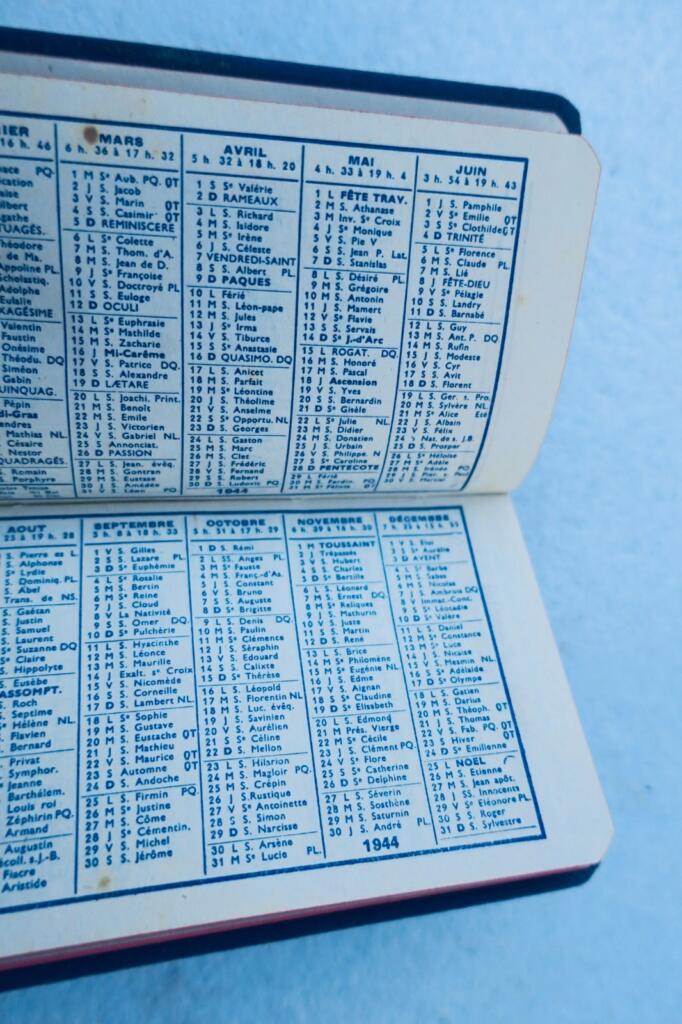 IER
16 h. 46
MARS
6 h. 36 à 17 h. 32
1 M Sᵉ Aub. PQ. QT
2 J S. Jacob
3 V S. Marin QT
4 S S. Casimir QT
5 D REMINISCERE
6 L Sᵉ Colette
7 M S. Thom. d'A.
8 M S. Jean de D.
9 J Sᵉ Françoise
10 V S. Doctroyé PL
11 S S. Euloge
12 D OCULI
13 L Sᵉ Euphrasie
14 M Sᵉ Mathilde
15 M S. Zacharie
16 J Mi-Carême
17 V S. Patrice DQ.
18 S S. Alexandre
19 D LÆTARE
20 L S. Joachi. Print.
21 M S. Benoît
22 M S. Emile
23 J S. Victorien
24 V S. Gabriel NL.
25 S Annonciat.
26 D PASSION
27 L S. Jean. évêq.
28 M S. Gontran
29 M S. Eustase
30 J S. Amédée
AVRIL
5 h. 32 à 18 h. 20
1 S Sᵉ Valérie
2 D RAMEAUX
3 L S. Richard
4 M S. Isidore
5 M Sᵉ Irène
6 J S. Céleste
7 VENDREDI-SAINT
8 S S. Albert PL.
9 D PAQUES
10 L Férié
11 M S. Léon-pape
12 M S. Jules
13 J Sᵉ Irma
14 V S. Tiburce
15 S Sᵉ Anastasie
16 D QUASIMO. DQ
17 L S. Anicet
18 M S. Parfait
19 M Sᵉ Léontine
20 J S. Théolime
21 V S. Anselme
22 S Sᵉ Opportu. NL
23 D S. Georges
24 L S. Gaston
25 M S. Marc
26 M S. Clet
27 J S. Frédéric
28 V S. Fernand
29 S S. Robert
30 D S. Ludovic PQ
MAI
4 h. 33 à 19 h. 4
1 L FÊTE TRAV.
2 M S. Athanase
3 M Inv. Sᵉ Croix
4 J Sᵉ Monique
5 V S. Pie V
6 S S. Jean P. Lat.
7 D S. Stanislas
8 L S. Désiré PL.
9 M S. Grégoire
10 M S. Antonin
11 J S. Mamert
12 V Sᵉ Flavie
13 S S. Servais
14 D Sᵉ J.-d'Arc
15 L ROGAT. DQ.
16 M S. Honoré
17 M S. Pascal
18 J Ascension
19 V S. Yves
20 S S. Bernardin
21 D Sᵉ Gisèle
22 L Sᵉ Julie NL.
23 M S. Didier
24 M S. Donatien
25 J S. Urbain
26 V S. Philipp. N
27 S Sᵉ Caroline
28 D PENTECOTE
29 L Férié
JUIN
3 h. 54 à 19 h. 43
1 J S. Pamphile
2 V Sᵉ Emilie QT
3 S Sᵉ Clothilde QT
4 D TRINITÉ
5 L Sᵉ Florence
6 M S. Claude PL.
7 M S. Lié
8 J FÊTE-DIEU
9 V Sᵉ Pélagie
10 S S. Landry
11 D S. Barnabé
12 L S. Guy
13 M S. Ant. P. DQ
14 M S. Rufin
15 J S. Modeste
16 V S. Cyr
17 S S. Avit
18 D S. Florent
19 L S. Ger. s. Pro.
20 M S. Sylvère NL.
21 M Sᵉ Alice Eté
22 J S. Alban
23 V S. Félix
24 S Nat. de s. J.B.
25 D S. Prosper
26 L Sᵉ Héloïse
27 M Sᵉ Adèle
1944
AOUT
SEPTEMBRE
1 V S. Gilles
2 S S. Lazare PL.
3 D Sᵉ Euphémie
4 L Sᵉ Rosalie
5 M S. Bertin
6 M Sᵉ Reine
7 J S. Cloud
8 V La Nativité
9 S S. Omer DQ.
10 D Sᵉ Pulchérie
11 L S. Hyacinthe
12 M S. Léonce
13 M S. Maurille
14 J Exalt. sᵉ Croix
15 V S. Nicomède
16 S S. Corneille
17 D S. Lambert NL.
18 L Sᵉ Sophie
19 M S. Gustave
20 M S. Eustache QT
21 J S. Mathieu
22 V S. Maurice QT
23 S Automne QT
24 D S. Andoche
25 L S. Firmin PQ
26 M Sᵉ Justine
27 M S. Côme
28 J S. Cémentin.
29 V S. Michel
30 S S. Jérôme
OCTOBRE
1 D S. Rémi
2 L SS. Anges PL
3 M S. Fauste
4 M S. Franç.-d'As.
5 J S. Constant
6 V S. Bruno
7 S S. Auguste
8 D Sᵉ Brigitte
9 L S. Denis DQ.
10 M S. Paulin
11 M S. Clémence
12 J S. Séraphin
13 V S. Edouard
14 S S. Calixte
15 D Sᵉ Thérèse
16 L S. Léopold
17 M S. Florentin NL
18 M S. Luc. évêq.
19 J S. Savinien
20 V S. Aurélien
21 S Sᵉ Céline
22 D S. Mellon
23 L S. Hilarion
24 M S. Magloir PQ.
25 M S. Crépin
26 J S. Rustique
27 V Sᵉ Antoinette
28 S S. Simon
29 D S. Narcisse
30 L S. Arsène
31 M Sᵉ Lucie PL.
NOVEMBRE
1 M TOUSSAINT
2 J Trépassés
3 V S. Hubert
4 S S. Charles
5 D Sᵉ Bertille
6 L S. Léonard
7 M S. Ernest DQ
8 M Sᵉ Reliques
9 J S. Mathurin
10 V S. Juste
11 S S. Martin
12 D S. René
13 L S. Brice
14 M Sᵉ Philomène
15 M Sᵉ Eugénie NL
16 J S. Edme
17 V S. Aignan
18 S Sᵉ Claudine
19 D Sᵉ Elisabeth
20 L S. Edmond
21 M Prés. Vierge
22 M Sᵉ Cécile
23 J S. Clément PQ.
24 V Sᵉ Flore
25 S Sᵉ Catherine
26 D Sᵉ Delphine
27 L S. Séverin
28 M S. Sosthène
29 M S. Saturnin
30 J S. André PL.
DÉCEMBRE
1 V S. Eloi
2 S Sᵉ Aurélie
3 D AVENT
4 L Sᵉ Barbe
5 M S. Sabas
6 M S. Nicolas
7 J S. Ambrois DQ
8 V Immac.-Conc.
9 S Sᵉ Léocadie
10 D Sᵉ Valère
11 L S. Daniel
12 M Sᵉ Constance
13 M Sᵉ Luce
14 J S. Nicaise
15 V S. Mesmin NL.
16 S Sᵉ Adélaïde
17 D Sᵉ Olympe
18 L S. Gatien
19 M S. Darius
20 M S. Théoph. QT
21 J S. Thomas
22 V S. Fab. PQ. QT
23 S Hiver QT
24 D Sᵉ Emilienne
25 L NOËL
26 M S. Etienne
27 M S. Jean apôt.
28 J SS. Innocents
29 V Sᵉ Eléonore PL.
30 S S. Roger
31 D S. Sylvestre
1944